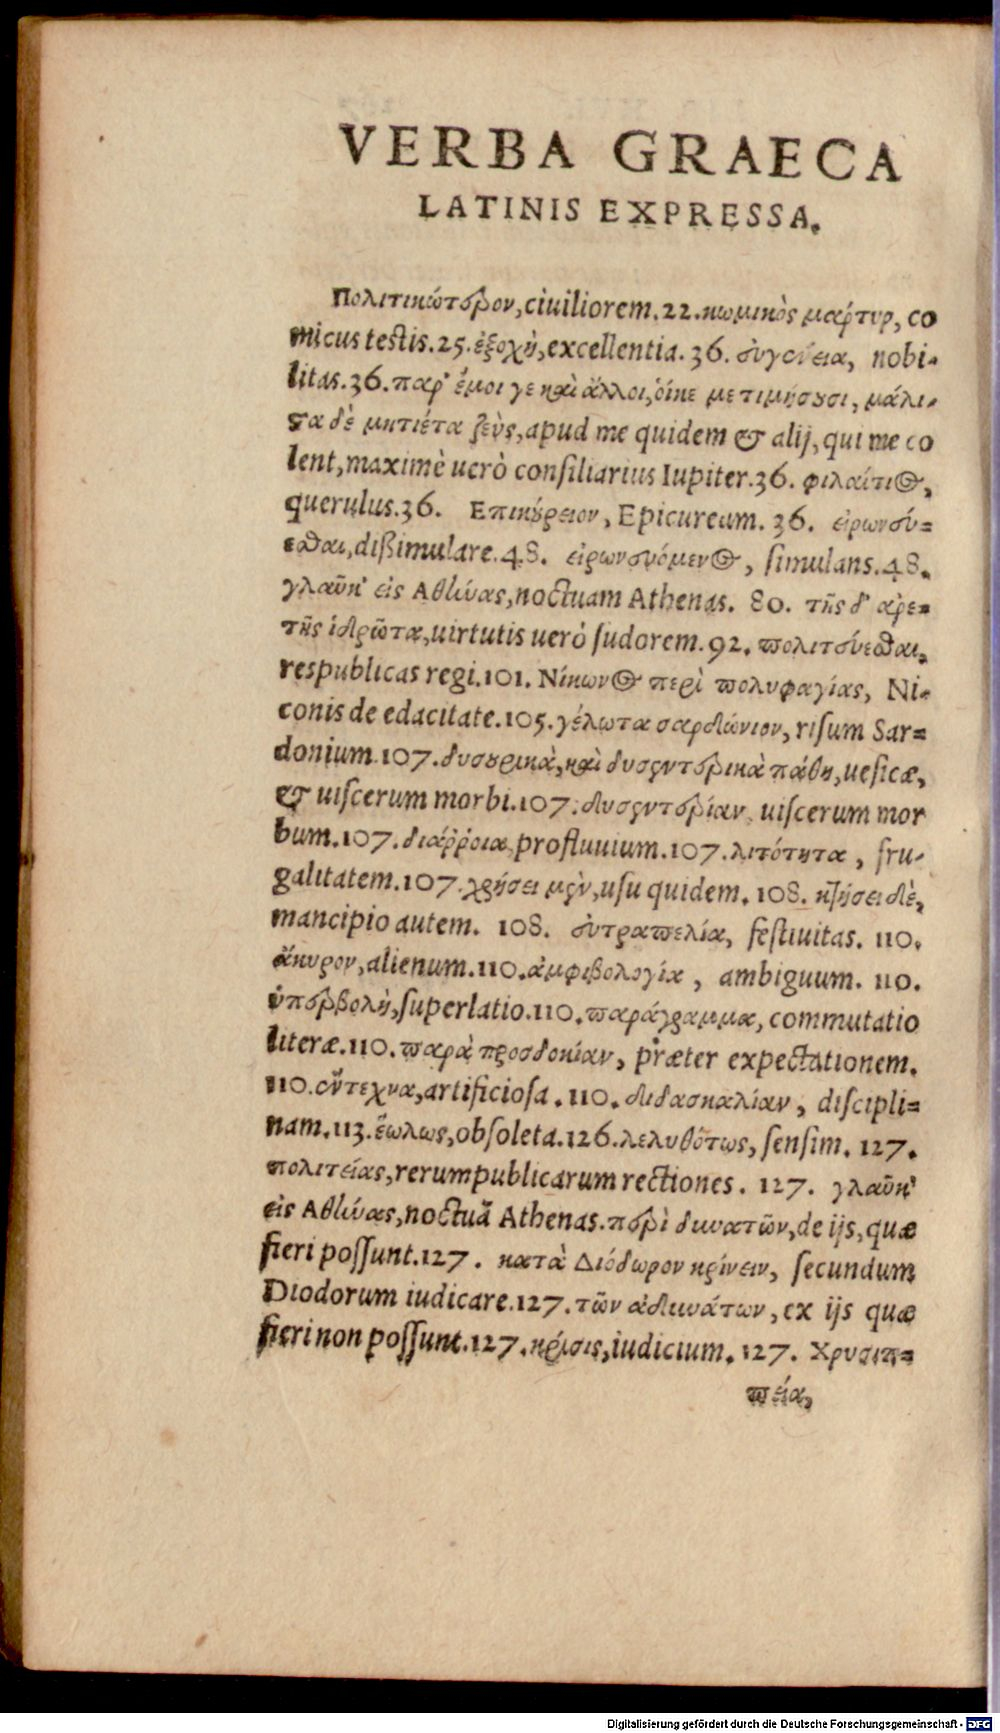 VERBA GRAECA
LATINIS EXPRESSA.
Πολιτικώτερον, ciuiliorem. 22. κωμικὸς μαρτυρ, co
micus testis. 25. ἐξοχὴ, excellentia. 36. ευγένεια, nobi-
litas. 36. παρ' ἔμοι γε καὶ ἄλλοι, ὁίκε με τιμήσουσι, μάλι-
στα δὲ μητιέτα ζεὺς, apud me quidem & alij, qui me co
lent, maximè uerò consiliarius Iupiter. 36. φιλαίτιος,
querulus. 36. Επικούρειον, Epicureum. 36. εἰρωνεύ=
εσθαι, dißimulare. 48. εἰρωνευόμενος, simulans. 48.
γλαῦκ' εἰς Αθήνας, noctuam Athenas. 80. τῆς δ' αρε=
τῆς ἱδρῶτα, uirtutis uerò sudorem. 92. πολιτεύεσθαι,
respublicas regi. 101. Νίκωνος περὶ πολυφαγίας, Ni-
conis de edacitate. 105. γέλωτα σαρδώνιον, risum Sar=
donium. 107. δυσουρικὰ, καὶ δυσεντερικὰ πάθη, uesicæ,
& uiscerum morbi. 107. δυσεντερίαν, uiscerum mor
bum. 107. διάῤῥοια, profluuium. 107. λιτότητα, fru-
galitatem. 107. χρήσει μὲν, usu quidem. 108. κτήσει δὲ,
mancipio autem. 108. ευτραπελία, festiuitas. 110.
ἄκυρον, alienum. 110. αμφιβολογία, ambiguum. 110.
ὑπερβολὴ, superlatio. 110. παράγραμμα, commutatio
literæ. 110. παρὰ προσδοκίαν, præter expectationem.
110. ἔντεχνα, artificiosa. 110. διδασκαλίαν, discipli=
nam. 113. ἕωλως, obsoleta. 126. λεληθότως, sensim. 127.
πολιτείας, rerumpublicarum rectiones. 127. γλαῦκ'
εἰς Αθήνας, noctuā Athenas. περὶ δυνατῶν, de ijs, quæ
fieri possunt. 127. κατὰ Διόδωρον κρίνειν, secundum
Diodorum iudicare. 127. τῶν ἀδυνάτων, ex ijs quæ
fieri non possunt. 127. κρίσις, iudicium. 127. Χρυσιπ=
πεία,
Digitalisierung gefördert durch die Deutsche Forschungsgemeinschaft - DFG